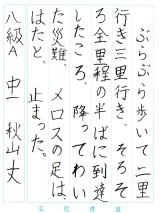 ぶらぶら歩いて二里
行き三里行き　そろそ
ろ全里程の半ばに到達
したころ、降ってわい
た災難、メロスの足は
はたと、止まった。
八級A　中一　秋山丈
文化書道